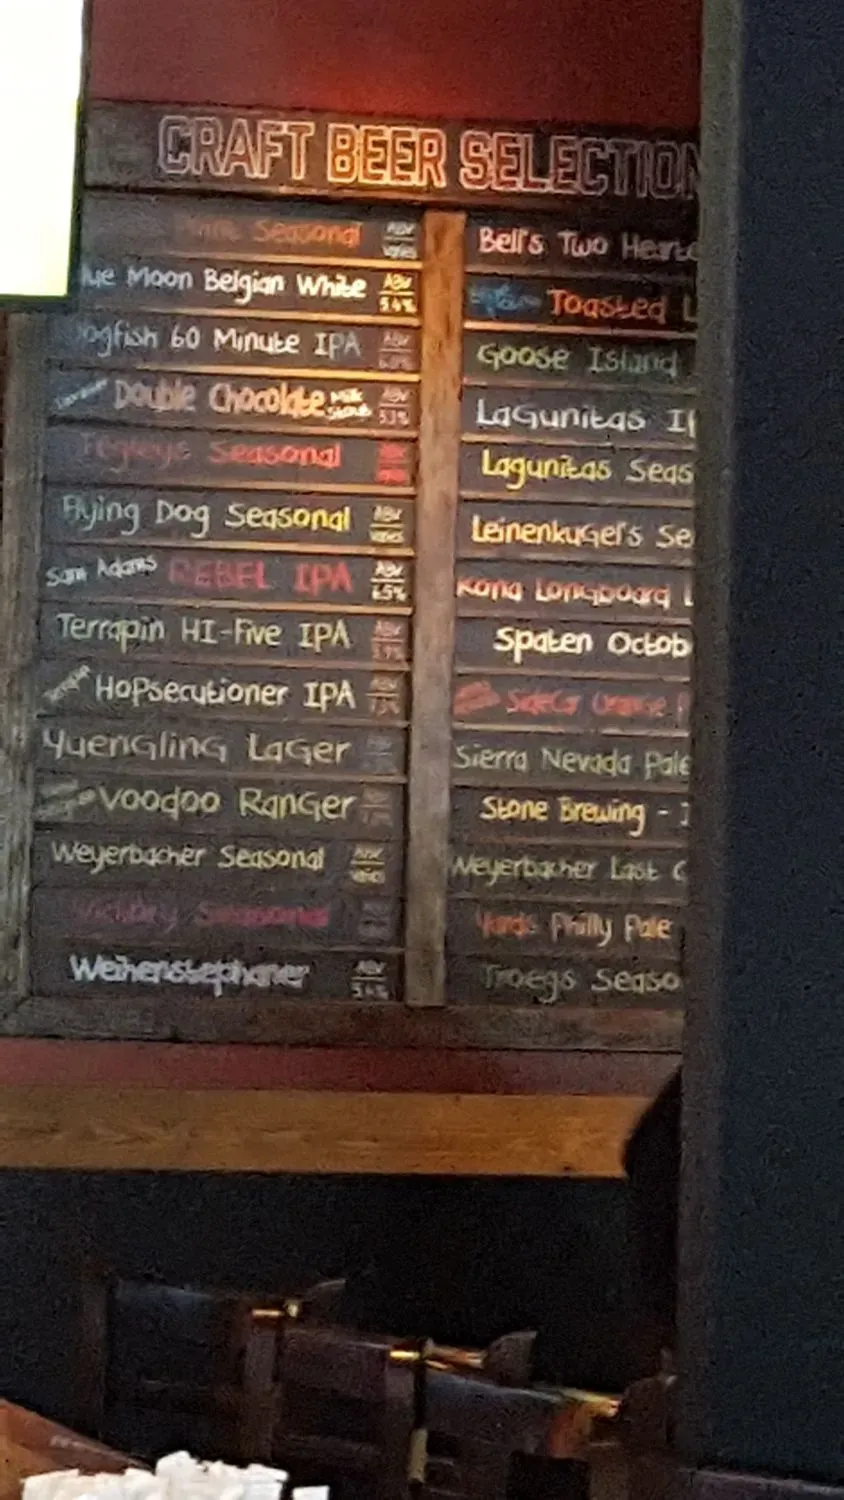 CRAFT BEER SELECTION
Seasonal ABV varies
ue Moon Belgian White ABV 5.4%
ogfish 60 Minute IPA ABV 6.0%
Double Chocolate Milk Stout ABV
Seasonal ABV
Flying Dog Seasonal ABV varies
Sam Adams REBEL IPA ABV 6.5%
Terrapin HI-Five IPA ABV
HOPsecutioner IPA ABV 7.3%
Yuengling Lager
Voodoo Ranger
Weyerbacher Seasonal ABV varies
Victory Seasonal
Weihenstephaner ABV 5.4%
Bell's Two Hearte
Toasted L
Goose Island
Lagunitas IP
Lagunitas Seas
Leinenkugel's Se
Kona Longboard L
Spaten Octob
SideCar Orange P
Sierra Nevada Pale
Stone Brewing - I
Weyerbacher Last C
Yards Philly Pale
Troegs Seaso